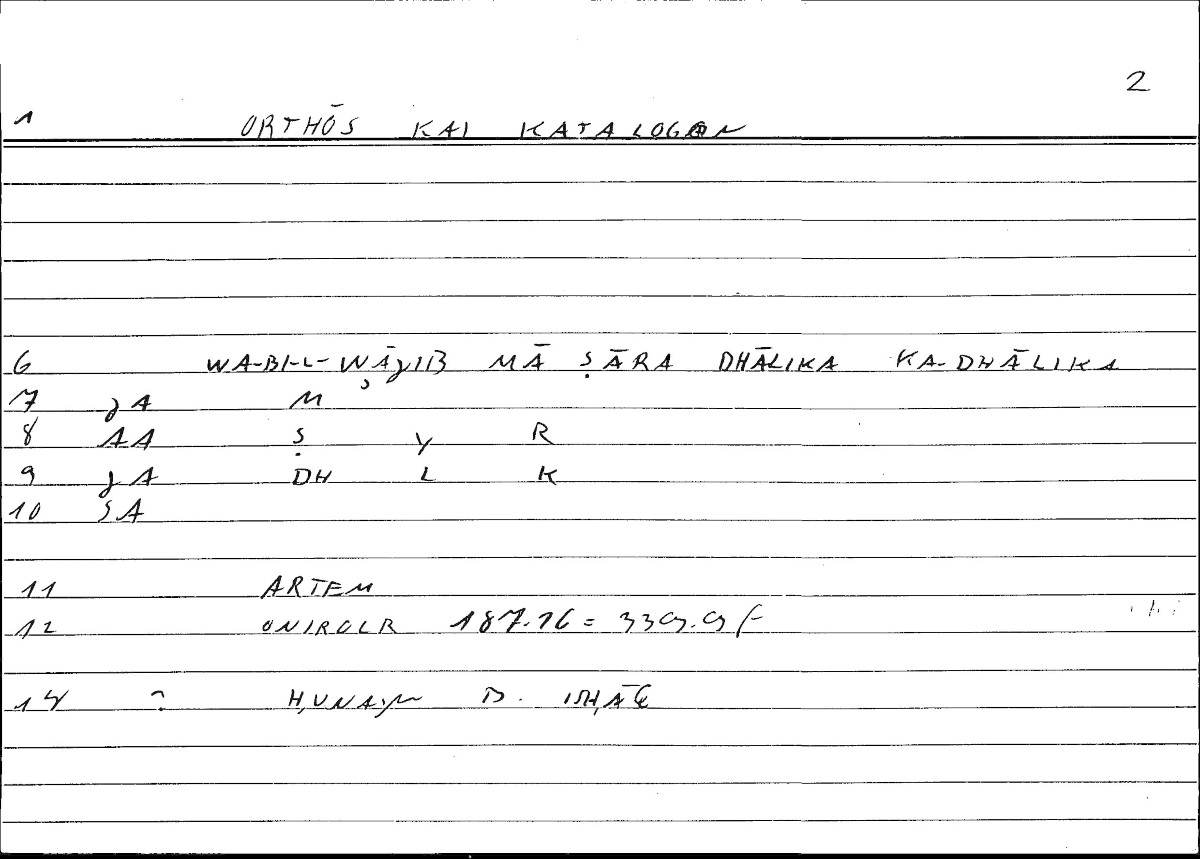 2
1 ORTHŌS KAI KATA LOGON
6 WA-BI-L-WĀǧIB MĀ ṢĀRA DHĀLIKA KA-DHĀLIKA
7 ȷA M
8 AA Ṣ Y R
9 ȷA DH L K
10 SA
11 ARTEM
12 ONIROCR 187.16 = 339.9 f
14 ? ḤUNAyN B. ISḤĀQ